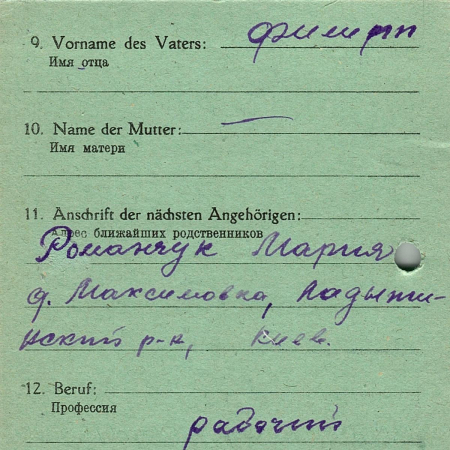 9. Vorname des Vaters: Филипп
Имя отца
10. Name der Mutter: —
Имя матери
11. Anschrift der nächsten Angehörigen:
Адрес ближайших родственников
Романчук Мария
д. Максимовка, Ладыжи-
нский р-н, Киев.
12. Beruf:
Профессия
рабочий